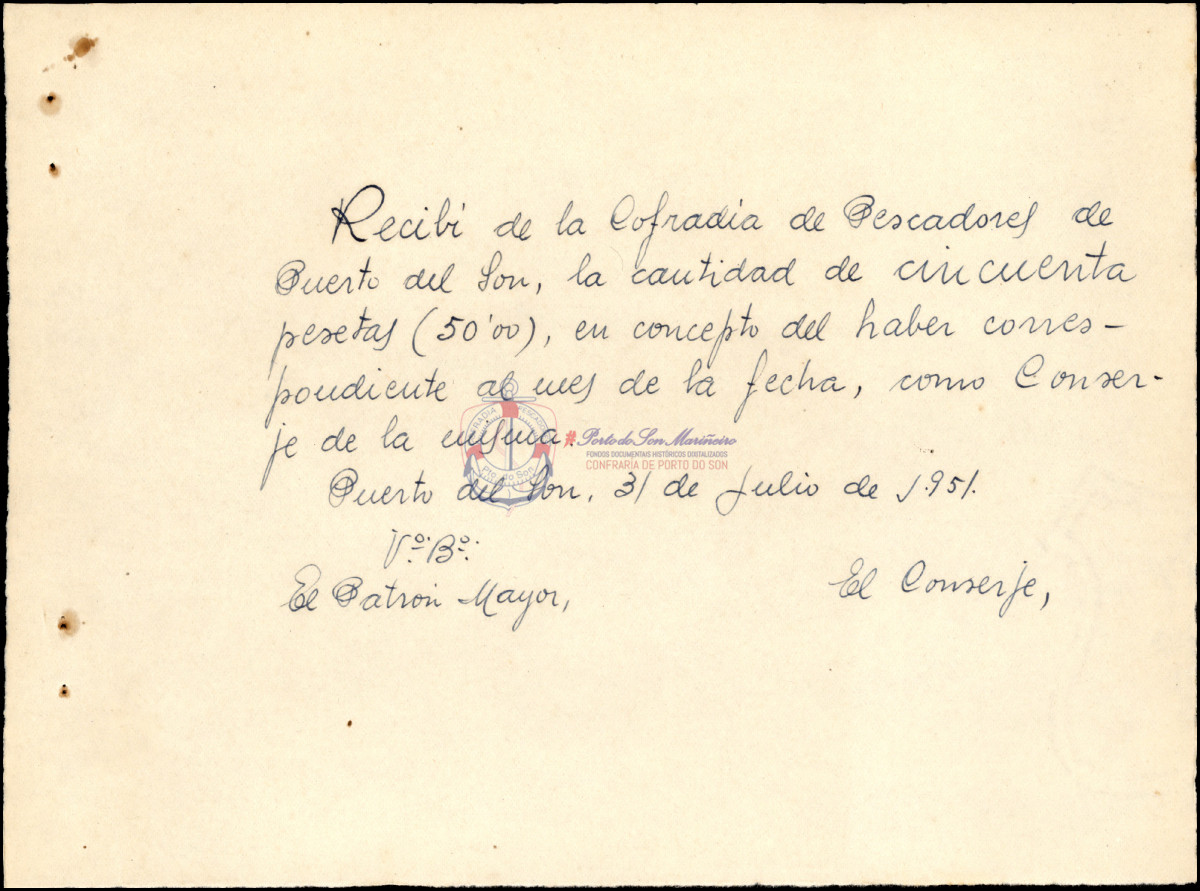 Recibí de la Cofradía de Pescadores de
Puerto del Son, la cantidad de cincuenta
pesetas (50'00), en concepto del haber corres-
pondiente al mes de la fecha, como Conser-
je de la misma.
#Porto do Son Mariñeiro
FONDOS DOCUMENTAIS HISTÓRICOS DIGITALIZADOS
CONFRARÍA DE PORTO DO SON
Pto. do Son
Puerto del Son, 31 de Julio de 1.951.
Vº. Bº.
El Patrón Mayor,
El Conserje,